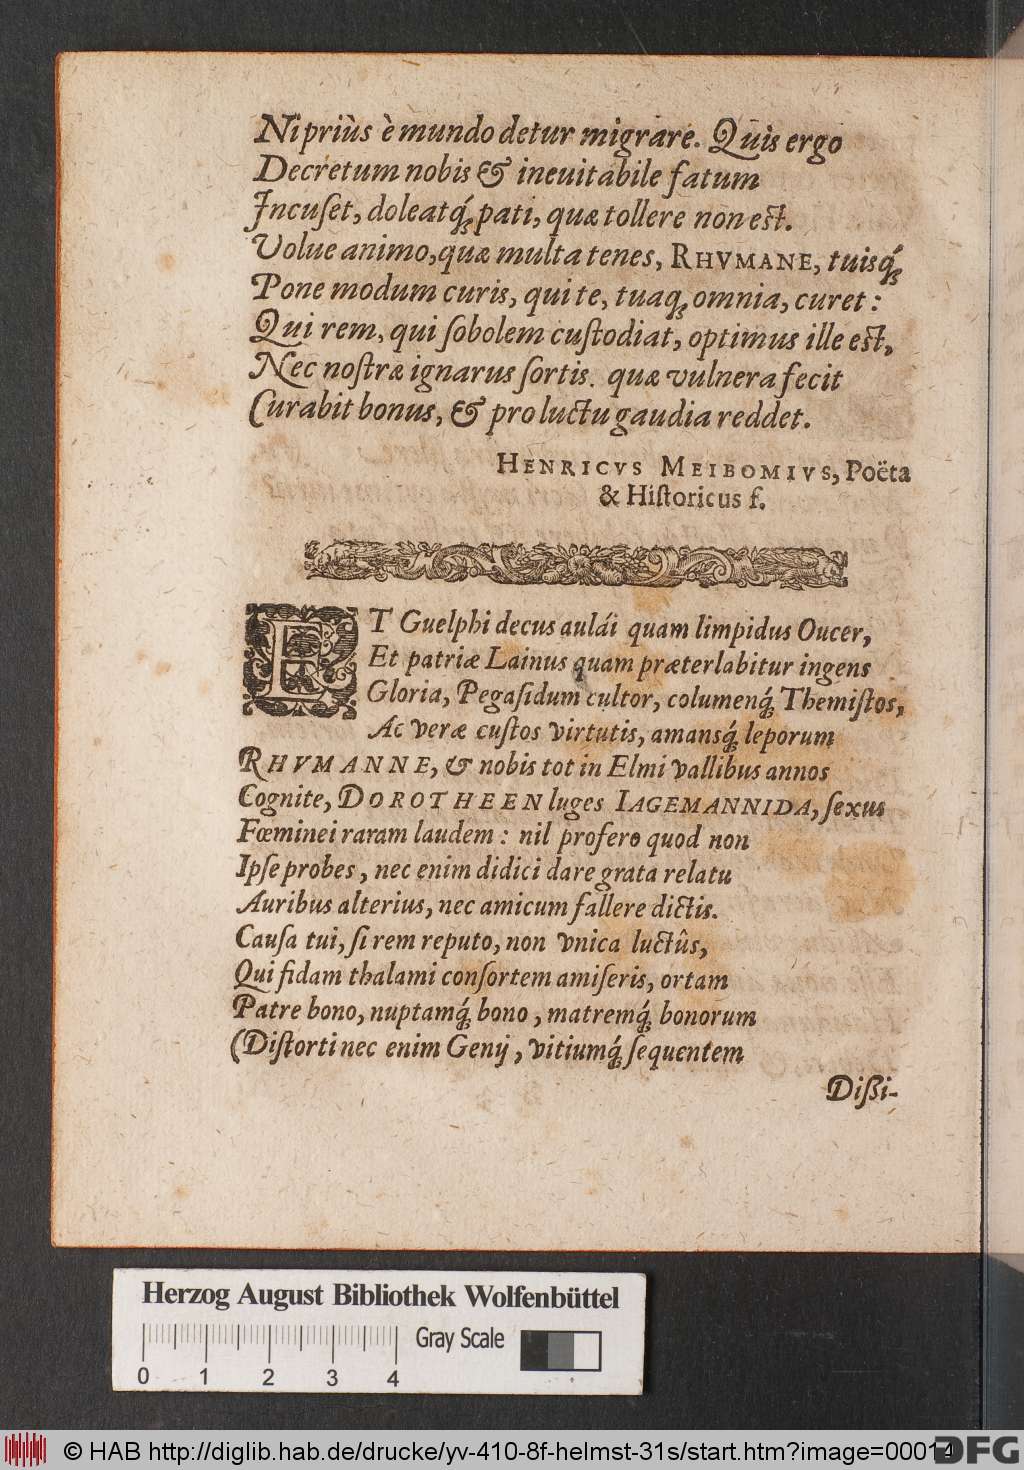 Ni priùs è mundo detur migrare. Quis ergo
Decretum nobis & ineuitabile fatum
Incuſet, doleatq́; pati, quæ tollere non est.
Volue animo, quæ multa tenes, RHVMANE, tuisq́;
Pone modum curis, qui te, tuaq; omnia, curet:
Qui rem, qui ſobolem cuſtodiat, optimus ille est,
Nec noſtræ ignarus ſortis. quæ vulnera fecit
Curabit bonus, & pro luctu gaudia reddet.
HENRICVS MEIBOMIVS, Poëta
& Hiſtoricus f.
ET Guelphi decus aulái quam limpidus Oucer,
Et patriæ Lainus quam præterlabitur ingens
Gloria, Pegaſidum cultor, columenq́; Themiſtos,
Ac veræ cuſtos virtutis, amansq́; leporum
RHVMANNE, & nobis tot in Elmi vallibus annos
Cognite, DOROTHEEN luges IAGEMANNIDA, ſexus
Fœminei raram laudem: nil profero quod non
Ipſe probes, nec enim didici dare grata relatu
Auribus alterius, nec amicum fallere dictis.
Cauſa tui, ſi rem reputo, non vnica luctûs,
Qui fidam thalami conſortem amiſeris, ortam
Patre bono, nuptamq́; bono, matremq́; bonorum
(Diſtorti nec enim Genij, vitiumq́; ſequentem
Dißi-
Herzog August Bibliothek Wolfenbüttel
Gray Scale
0 1 2 3 4
© HAB http://diglib.hab.de/drucke/yv-410-8f-helmst-31s/start.htm?image=00014
DFG